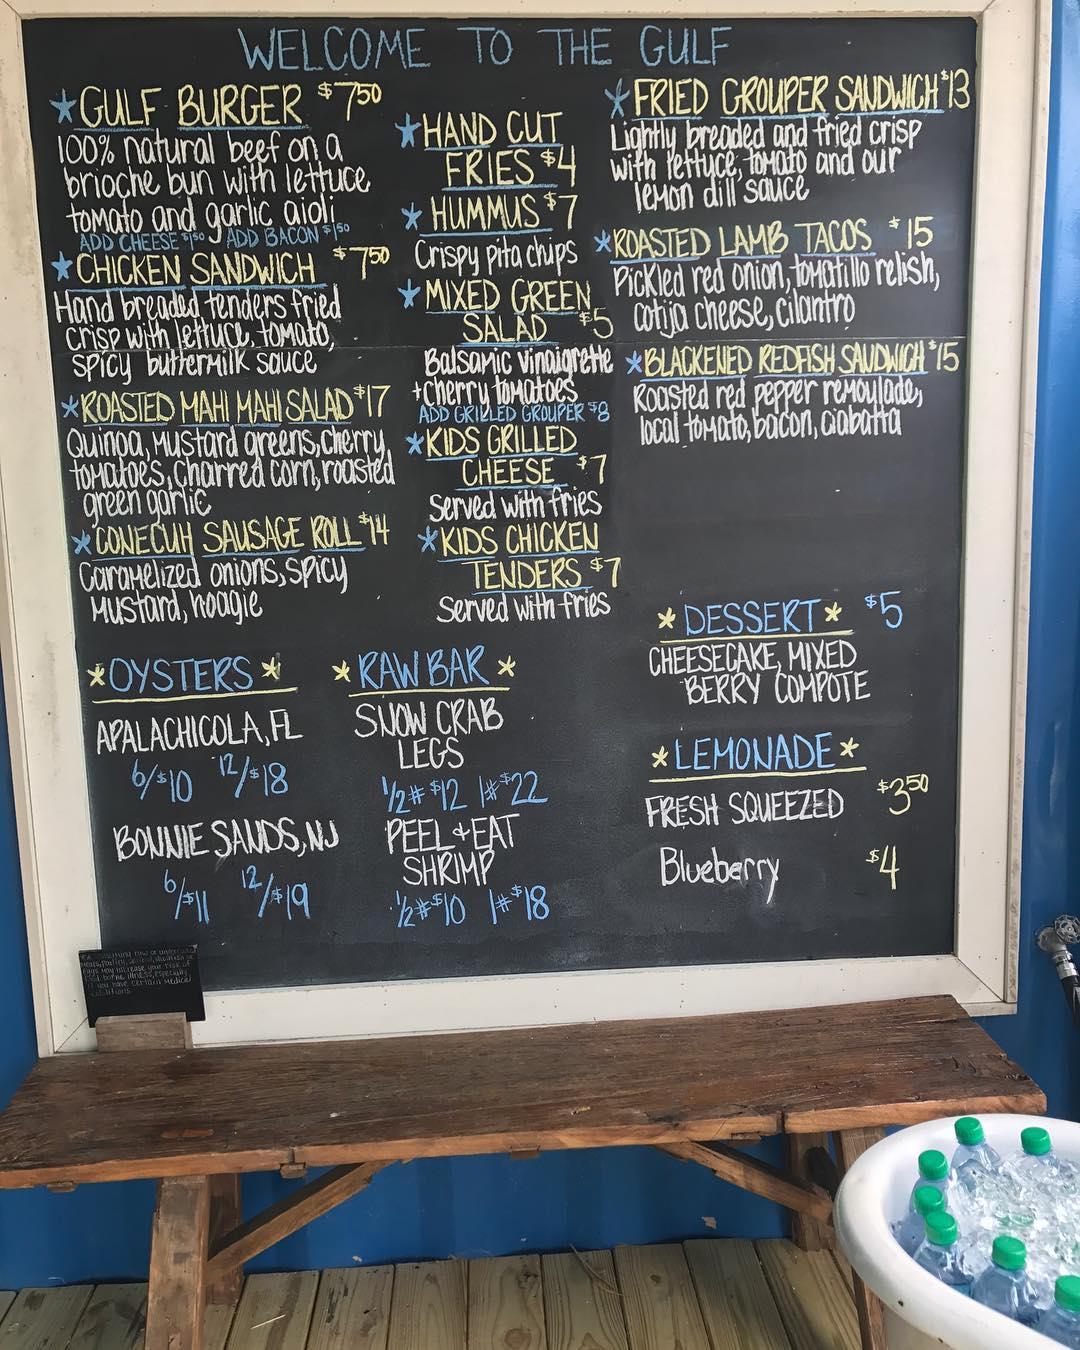 WELCOME TO THE GULF
GULF BURGER $7.50
100% natural beef on a
brioche bun with lettuce
tomato and garlic aioli
ADD CHEESE $1.50 ADD BACON $1.50
CHICKEN SANDWICH $7.50
Hand breaded tenders fried
crisp with lettuce, tomato,
spicy buttermilk sauce
ROASTED MAHI MAHI SALAD $17
Quinoa, mustard greens, cherry
tomatoes, charred corn, roasted
green garlic
CONECUH SAUSAGE ROLL $14
Caramelized onions, spicy
mustard, hoagie
HAND CUT
FRIES $4
HUMMUS $7
Crispy pita chips
MIXED GREEN
SALAD $5
Balsamic vinaigrette
+ cherry tomatoes
ADD GRILLED GROUPER $8
KIDS GRILLED
CHEESE $7
Served with fries
KIDS CHICKEN
TENDERS $7
Served with fries
FRIED GROUPER SANDWICH $13
Lightly breaded and fried crisp
with lettuce, tomato and our
lemon dill sauce
ROASTED LAMB TACOS $15
Pickled red onion, tomatillo relish,
cotija cheese, cilantro
BLACKENED REDFISH SANDWICH $15
Roasted red pepper remoulade,
local tomato, bacon, ciabatta
OYSTERS
APALACHICOLA, FL
6/$10 12/$18
BONNIE SANDS, NJ
6/$11 12/$19
RAW BAR
SNOW CRAB
LEGS
1/2# $12 1# $22
PEEL & EAT
SHRIMP
1/2# $10 1# $18
DESSERT $5
CHEESECAKE, MIXED
BERRY COMPOTE
LEMONADE
FRESH SQUEEZED $3.50
Blueberry $4
consuming raw or undercooked
meats, poultry, seafood, shellfish or
eggs may increase your risk of
food borne illness, especially
if you have certain medical
conditions